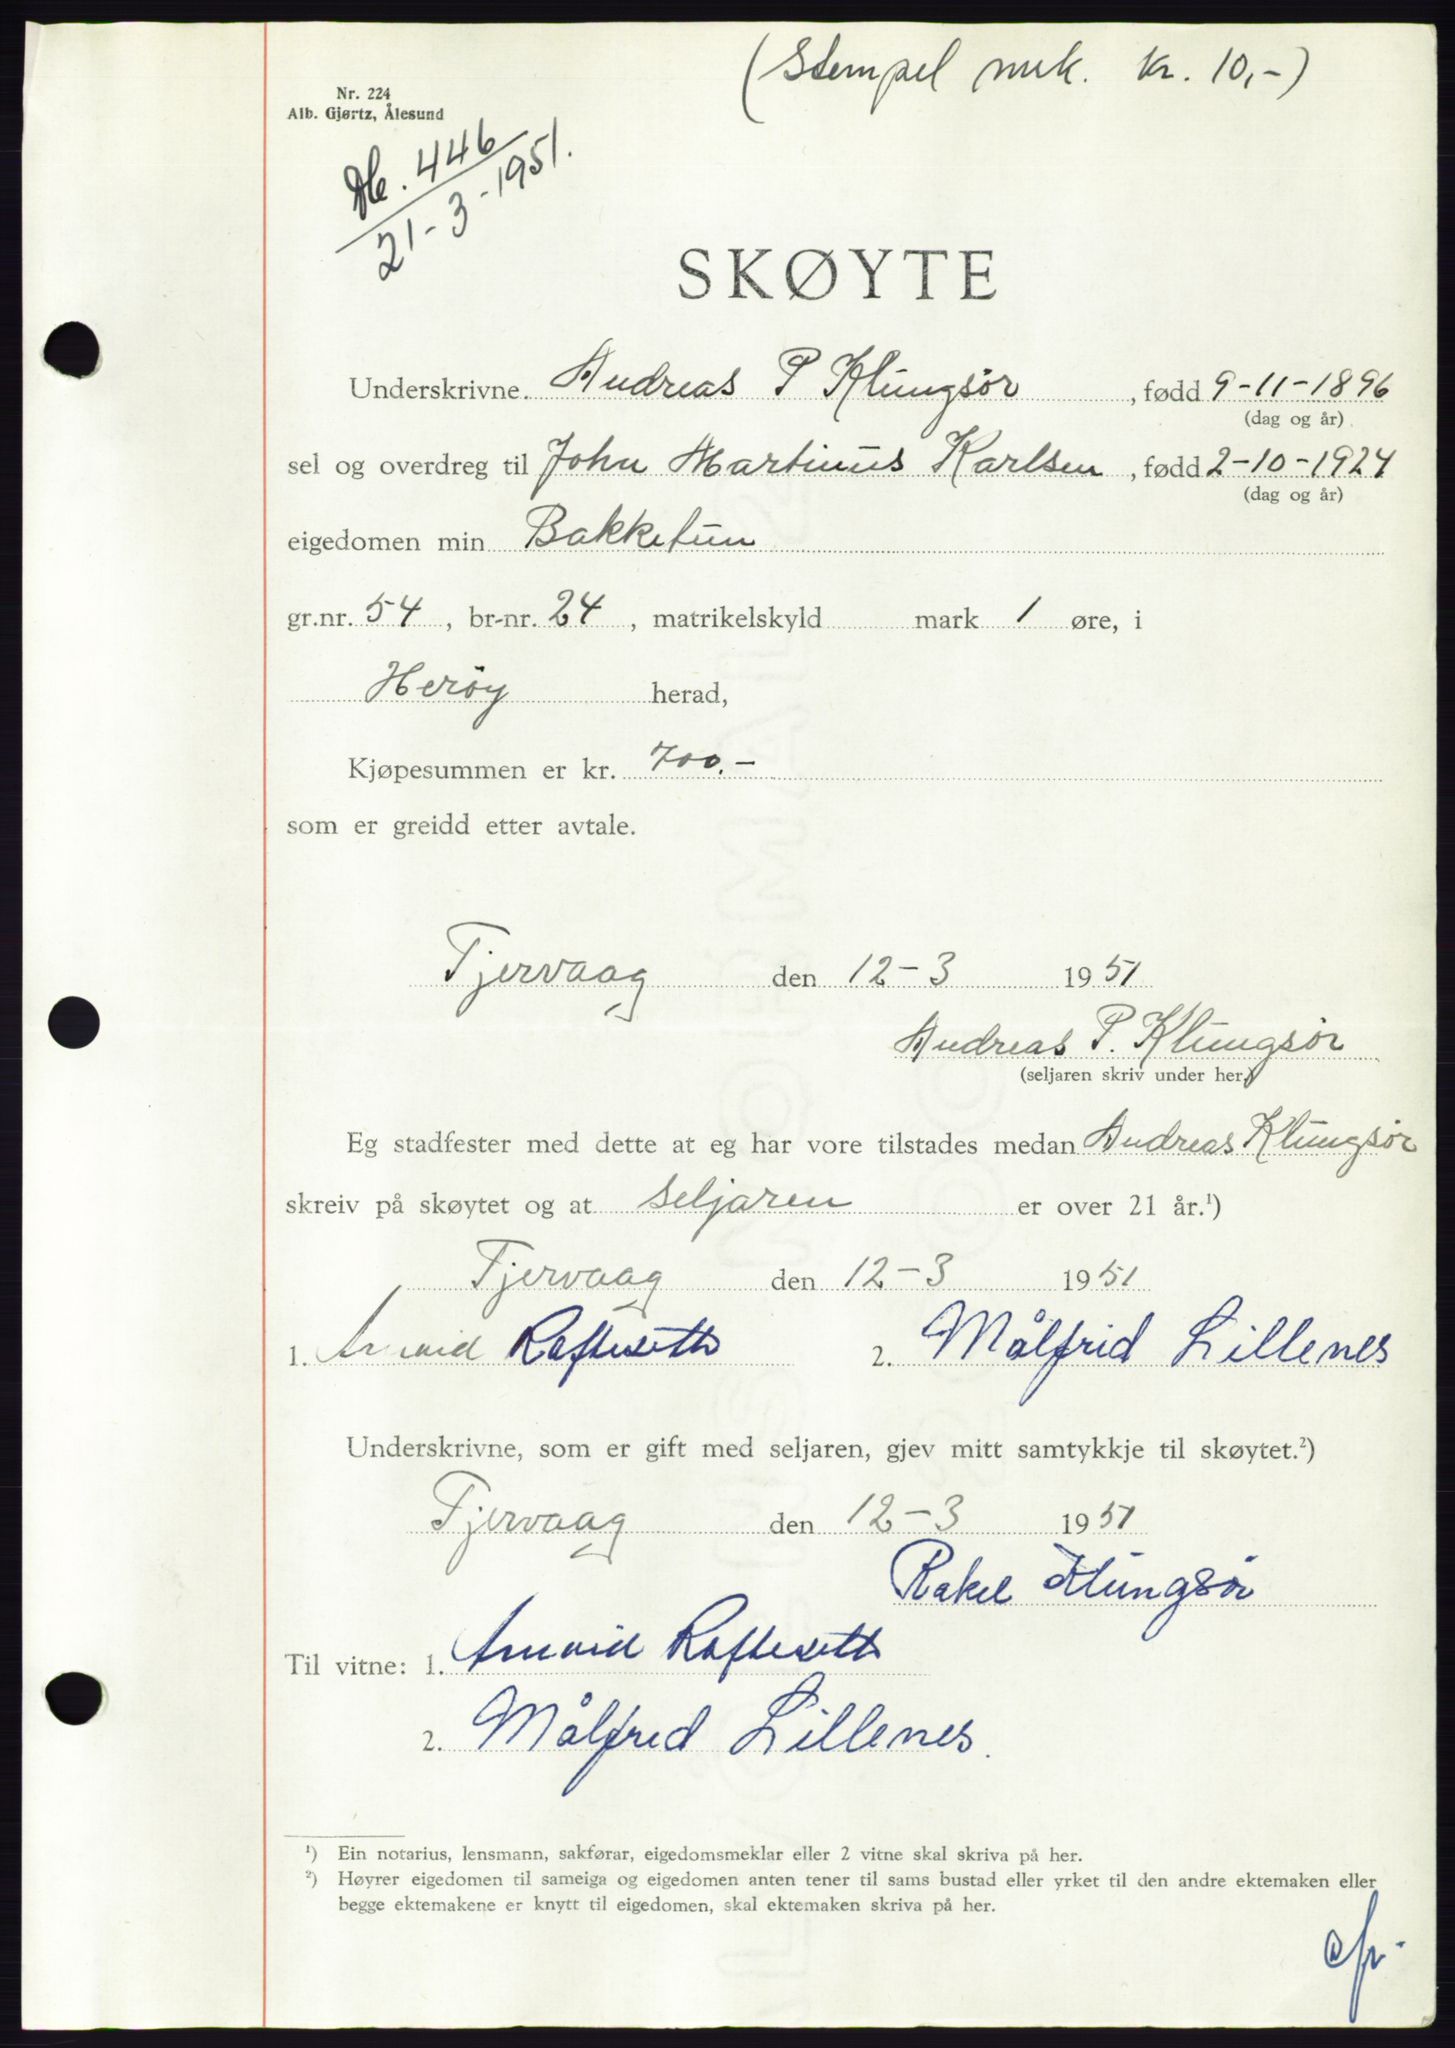 (Stempel mrk. kr. 10,-)
Nr. 224
Alb. Gjørtz, Ålesund
446
21-3-1951.
SKØYTE
Underskrivne Andreas P Klungsör, fødd 9-11-1896
(dag og år)
sel og overdreg til John Martinus Karlsen, fødd 2-10-1924
(dag og år)
eigedomen min Bakketun
gr.nr. 54, br-nr. 24, matrikelskyld mark 1 øre, i
Heröy herad,
Kjøpesummen er kr. 700.-
som er greidd etter avtale.
Tjervaag den 12-3 1951
Andreas P. Klungsör
(seljaren skriv under her.)
Eg stadfester med dette at eg har vore tilstades medan Andreas Klungsör
skreiv på skøytet og at seljaren er over 21 år.¹)
Tjervaag den 12-3 1951
1. Arnvid Rafteseth 2. Målfrid Lillenes
Underskrivne, som er gift med seljaren, gjev mitt samtykkje til skøytet.²)
Tjervaag den 12-3 1951
Rakel Klungsör
Til vitne: 1. Arnvid Rafteseth
2. Målfrid Lillenes.
¹) Ein notarius, lensmann, sakførar, eigedomsmeklar eller 2 vitne skal skriva på her.
²) Høyrer eigedomen til sameiga og eigedomen anten tener til sams bustad eller yrket til den andre ektemaken eller
begge ektemakene er knytt til eigedomen, skal ektemaken skriva på her.